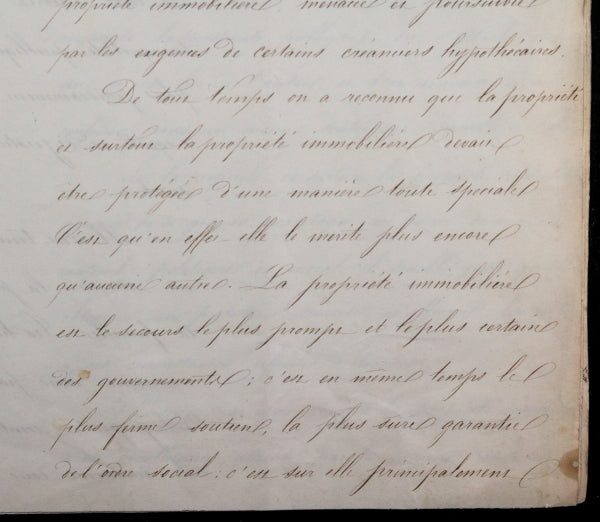 propriété immobilière menacée et poursuivie
par les exigences de certains créanciers hypothécaires.
De tout temps on a reconnu que la propriété
et surtout la propriété immobilière devait
etre protégée d'une manière toute spéciale
C'est qu'en effet elle le mérite plus encore
qu'aucune autre. La propriété immobilière
est le secours le plus prompt et le plus certain
des gouvernements ; c'est en même temps le
plus ferme soutien, la plus sûre garantie
de l'ordre social : c'est sur elle principalement